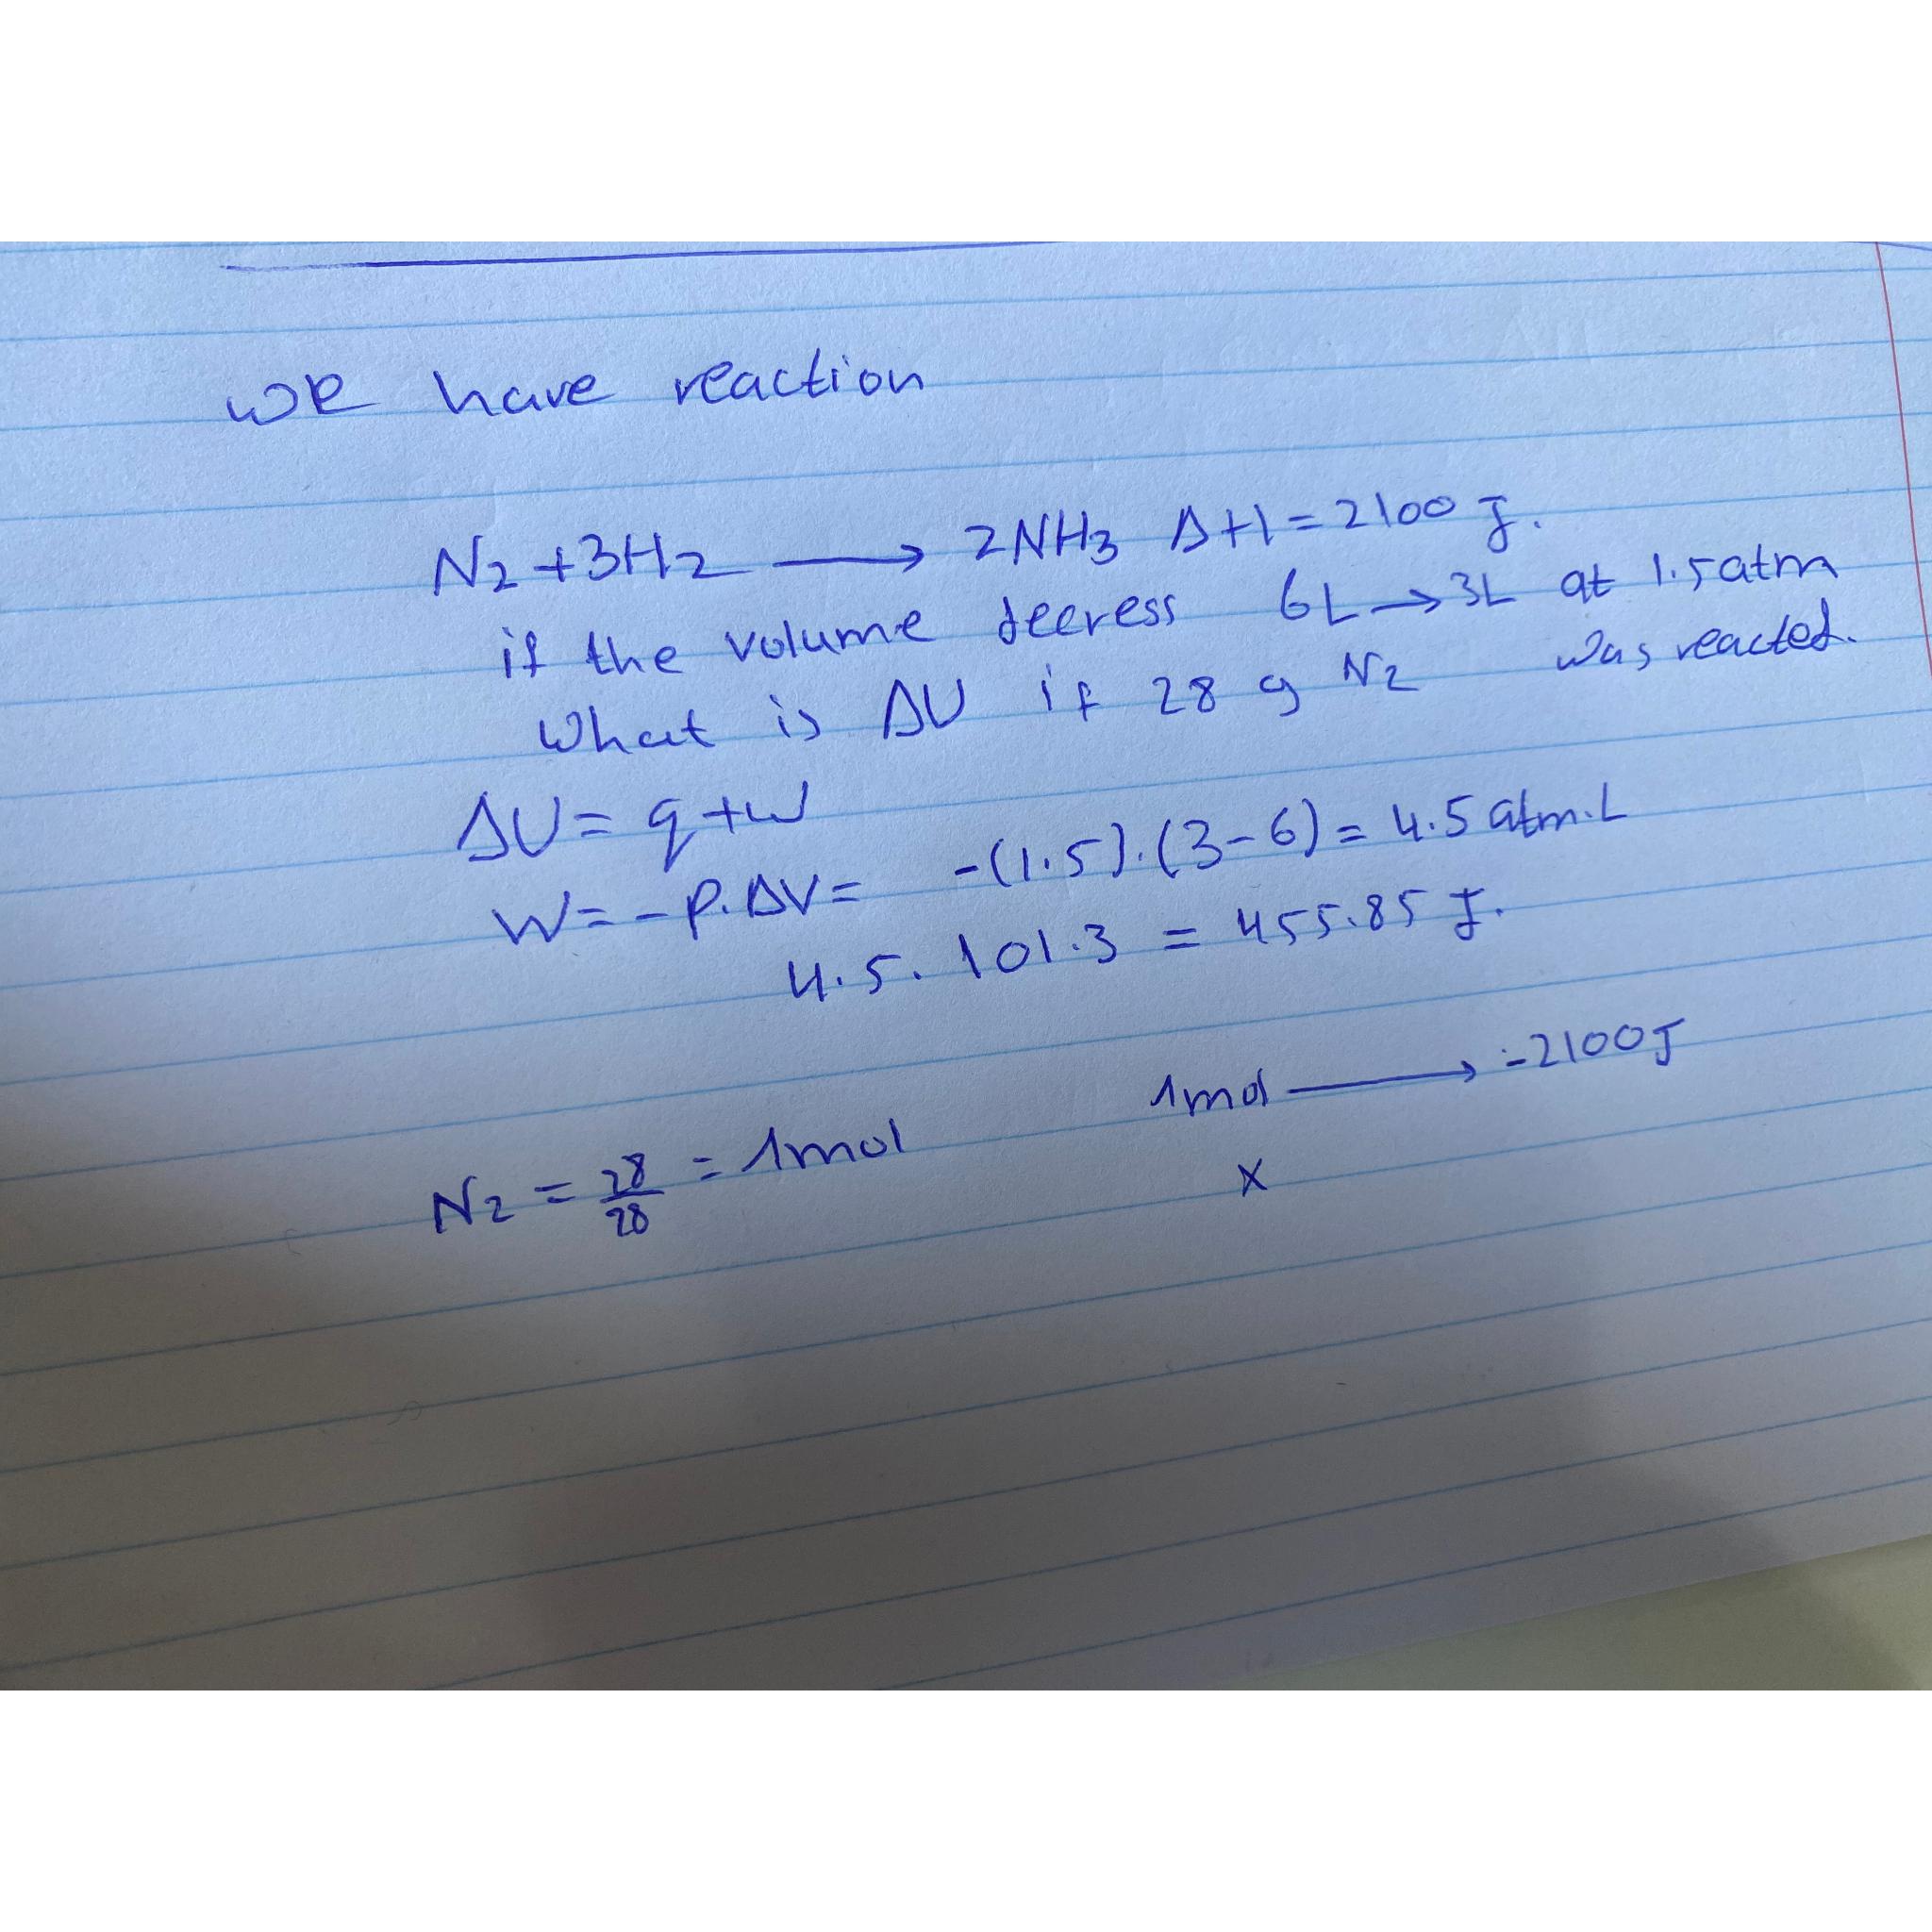 we have reaction
N2 +3H2 → 2NH3 ΔH = 2100 J.
if the volume decress 6L → 3L at 1.5 atm
What is ΔU if 28 g N2 was reacted.
ΔU = q + w
W = - P. ΔV = -(1.5).(3-6) = 4.5 atm.L
4.5. 101.3 = 455.85 J.
1mol → -2100J
N2 = 28/28 = 1mol
X